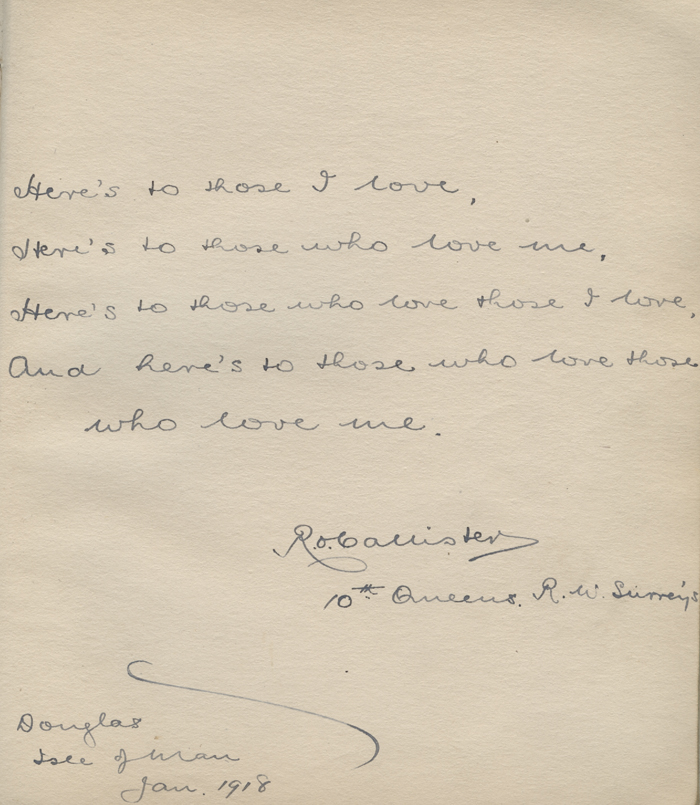 Here's to those I love,
Here's to those who love me,
Here's to those who love those I love,
And here's to those who love those
who love me.
R.O. Callister
10th Queens. R. W. Surrey's
Douglas
Isle of Man
Jan. 1918